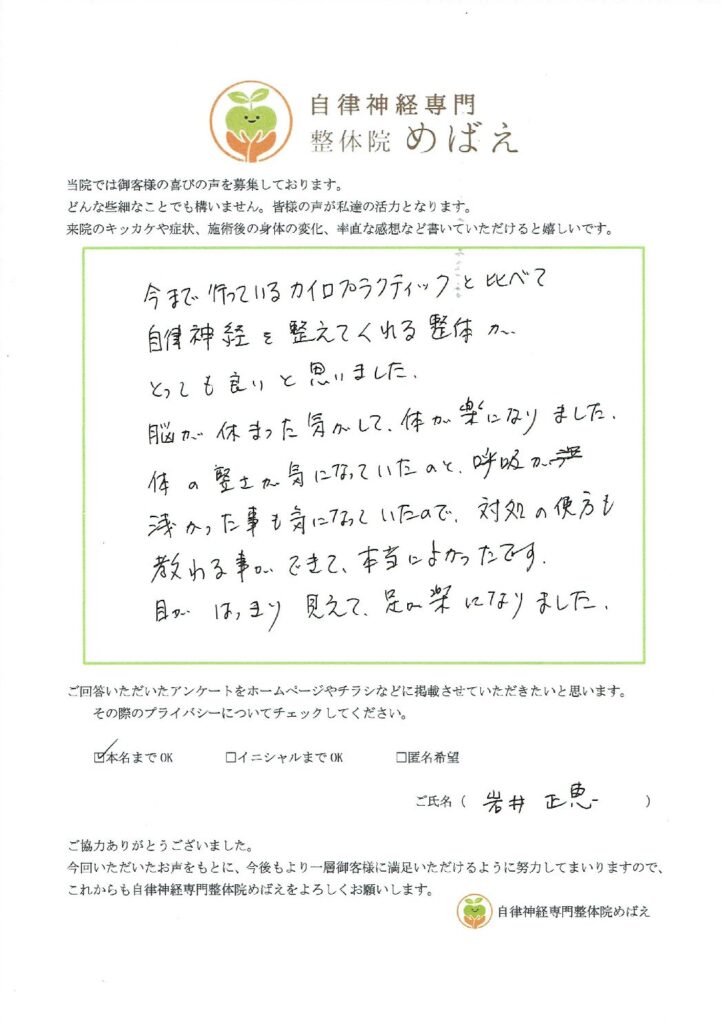 自律神経専門
整体院 めばえ
当院では御客様の喜びの声を募集しております。
どんな些細なことでも構いません。皆様の声が私達の活力となります。
来院のキッカケや症状、施術後の身体の変化、率直な感想など書いていただけると嬉しいです。
今まで行っているカイロプラクティックと比べて
自律神経を整えてくれる整体が
とっても良いと思いました。
脳が休まった気がして、体が楽になりました。
体の堅さが気になっていたのと、呼吸が
浅かった事も気になっていたので、対処の仕方も
教われる事ができて、本当によかったです。
目がはっきり見えて、足が楽になりました。
ご回答いただいたアンケートをホームページやチラシなどに掲載させていただきたいと思います。
その際のプライバシーについてチェックしてください。
☑本名までOK □イニシャルまでOK □匿名希望
ご氏名（ 岩井 正恵 ）
ご協力ありがとうございました。
今回いただいたお声をもとに、今後もより一層御客様に満足いただけるように努力してまいりますので、
これからも自律神経専門整体院めばえをよろしくお願いします。
自律神経専門整体院めばえ